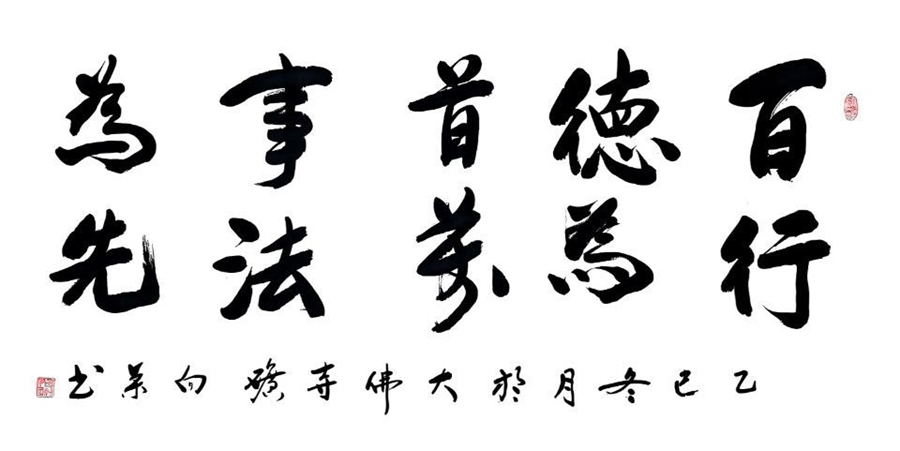 百行
德為
首萬
事法
為先
乙巳冬月於大佛寺向荣书